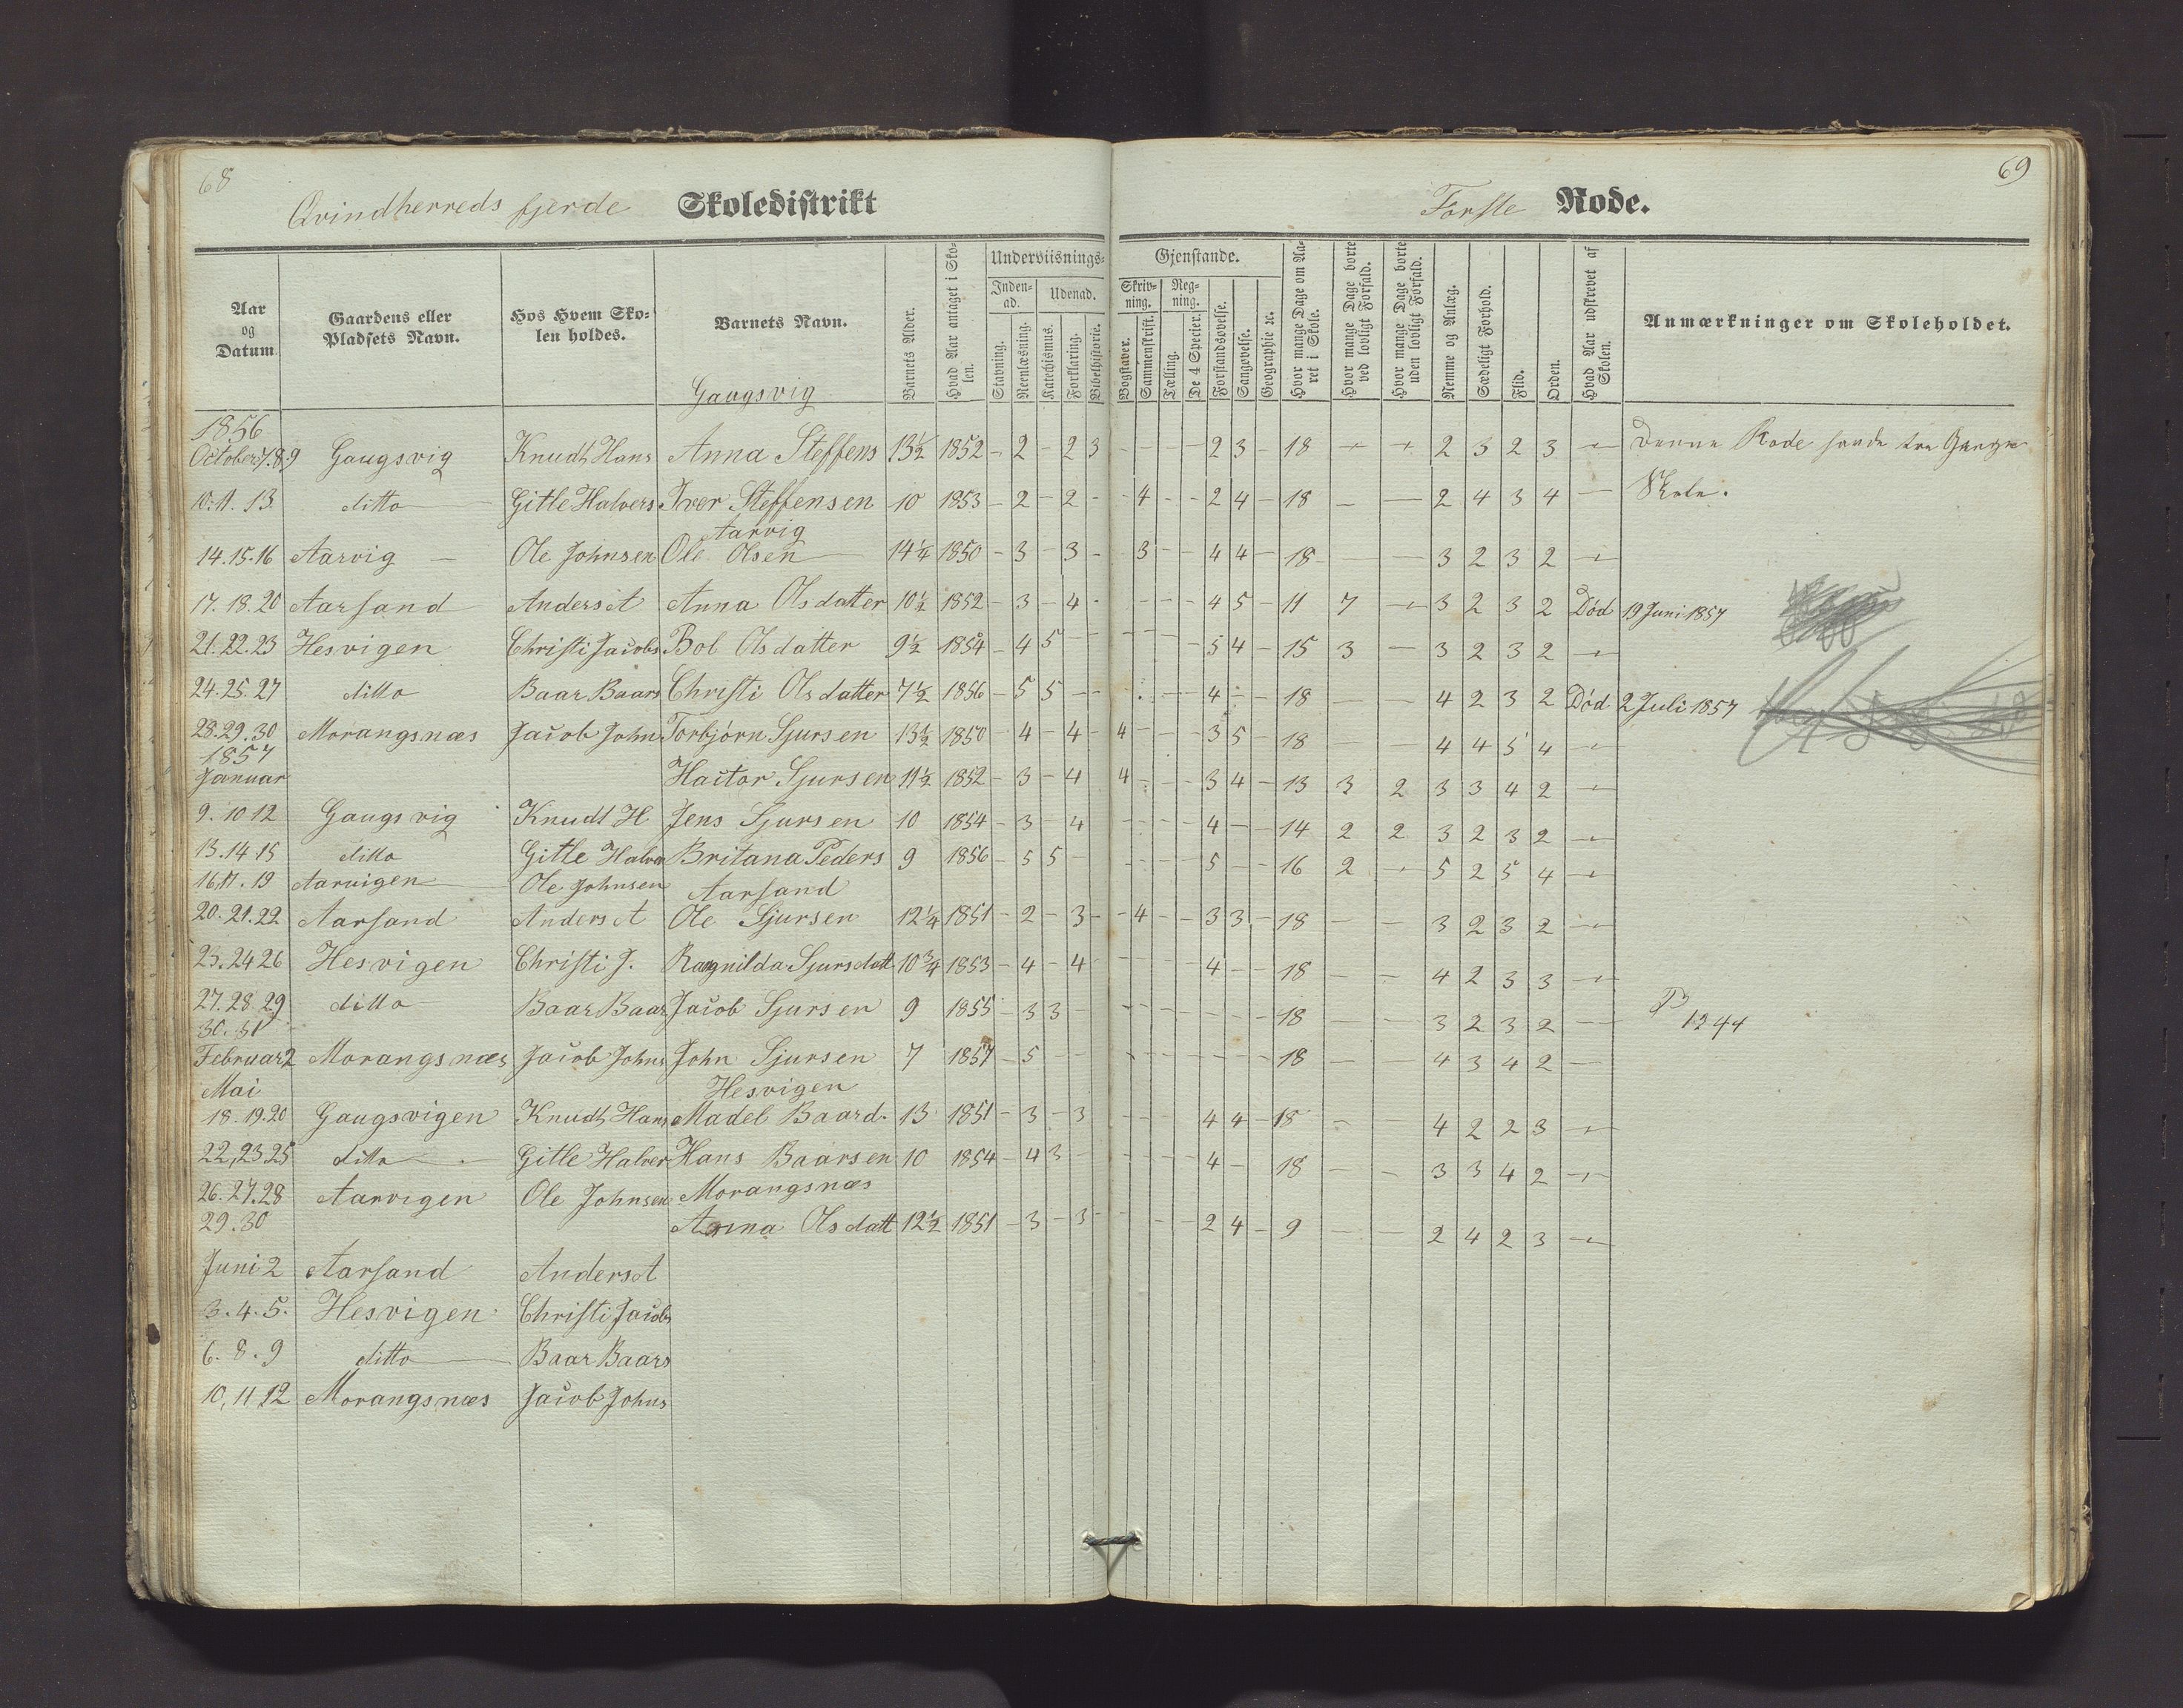 68
69
Qvindherreds fjerde Skoledistrikt
Forste Rode.
Aar og Datum
Gaardens eller Pladsets Navn.
Hos Hvem Skolen holdes.
Barnets Navn.
Barnets Alder.
Hvad Aar antaget i Skolen.
Underviisnings-Gjenstande.
Indenad.
Udenad.
Skrivning.
Regning.
Stavning.
Reenlæsning.
Katechismus.
Forklaring.
Bibelhistorie.
Bogstaver.
Sammenskrift.
Tælling.
De 4 Specier.
Forstandsøvelse.
Sangøvelse.
Geographie ec.
Hvor mange Dage om Aaret i Skole.
Hvor mange Dage borte ved lovligt Forfald.
Hvor mange Dage borte uden lovligt Forfald.
Nemme og Anlæg.
Sædeligt Forhold.
Flid.
Orden.
Hvad Aar udskrevet af Skolen.
Anmærkninger om Skoleholdet.
Gaugsvig
1856
October 7.8.9 Gaugsvig Knudt Hans Anna Steffens 13½ 1852 - 2 - 2 3 - - - - 2 3 - 18 - - 2 3 2 3 - Denne Rode havde tre Gange
10.11.13. ditto Gitle Halvers Iver Steffensen 10 1853 - 2 - 2 - - 4 - - 2 4 - 18 - - 2 4 3 4 - Skole.
Aarvig
14.15.16 Aarvig Ole Johnsen Ole Olsen 14¼ 1850 - 3 - 3 - 3 - - 4 4 - 18 - - 3 2 3 2 -
17.18.20 Aarsand Anders A Anna Olsdatter 10½ 1852 - 3 - 4 - - - - - 4 5 - 11 7 - 3 2 3 2 Død 19 Juni 1857
21.22.23 Hesvigen Christi Jacobs Bol Olsdatter 9½ 1854 - 4 5 - - - - - - 5 4 - 15 3 - 3 2 3 2 -
24.25.27 ditto Baar Baars Christi Olsdatter 7½ 1856 - 5 5 - - - - - 4 - - 18 - - 4 2 3 2 Død 2 Juli 1857
28.29.30 Morangsnæs Jacob John Torbjørn Sjursen 13½ 1850 - 4 - 4 - 4 - - - 3 5 - 18 - - 4 4 5 4 -
1857
Januar Hactor Sjursen 11½ 1852 - 3 - 4 4 - - - 3 4 - 13 3 2 3 3 4 2 -
9.10 12 Gaugsvig Knudt H Jens Sjursen 10 1854 - 3 - 4 - - - - 4 - - 14 2 2 3 2 3 2 -
13.14 15 ditto Gitle Halvo Britana Peders 9 1856 - 5 5 - - - - - 5 - - 16 2 - 5 2 5 4 -
16.17.19 Aarvigen Ole Johnsen Aarsand
20.21.22 Aarsand Anders A Ole Sjursen 12¼ 1851 - 2 - 3 - - 4 - - 3 3 - 18 - - 3 2 3 2 -
23.24 26 Hesvigen Christi J. Ragnilda Sjursdatt 10¾ 1853 - 4 - 4 - - - - 4 - - 18 - - 4 2 3 3 -
27.28.29 ditto Baar Baar Jacob Sjursen 9 1855 - 3 3 - - - - - - - - 18 - - 3 2 3 2 -
1244
30.31
Februar 2 Morangsnæs Jacob Johns John Sjursen 7 1857 - 5 - - - - - - - - - 18 - - 4 3 4 2 -
Mai Hesvigen
18.19.20 Gaugsvigen Knudt Hans Madel Baard. 13 1851 - 3 - 3 - - - 4 4 - 18 - - 4 2 2 3 -
22,23.25 ditto Gitle Halver Hans Baarsen 10 1854 - 4 3 - - - - - 4 - 18 - - 3 3 4 2 -
26.27.28 Aarvigen Ole Johnsen Morangsnæs
29.30 Anna Olsdatt 12½ 1851 - 3 - 3 - - - - 2 4 - 9 - - 2 4 2 3 -
Juni 2 Aarsand Anders A
3.4.5. Hesvigen Christi Jacobs
6.8.9 ditto Baar Baars
10,11,12 Morangsnæs Jacob Johns